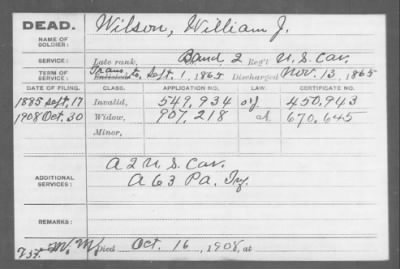 DEAD.
Wilson, William J.
NAME OF SOLDIER:
SERVICE: Late rank, Band 2 Reg't U. S. Cav.
TERM OF SERVICE: Trans. to, Sept. 1, 1865 Discharged Nov. 13, 1865
DATE OF FILING. CLASS. APPLICATION NO. LAW. CERTIFICATE NO.
1885 Sept. 17 Invalid, 549,934 450,943
1908 Oct. 30 Widow, 907,218 670,645
Minor,
ADDITIONAL SERVICES: A 2 U. S. Cav.
A 63 Pa. Inf.
REMARKS:
Died Oct. 16, 1908, at